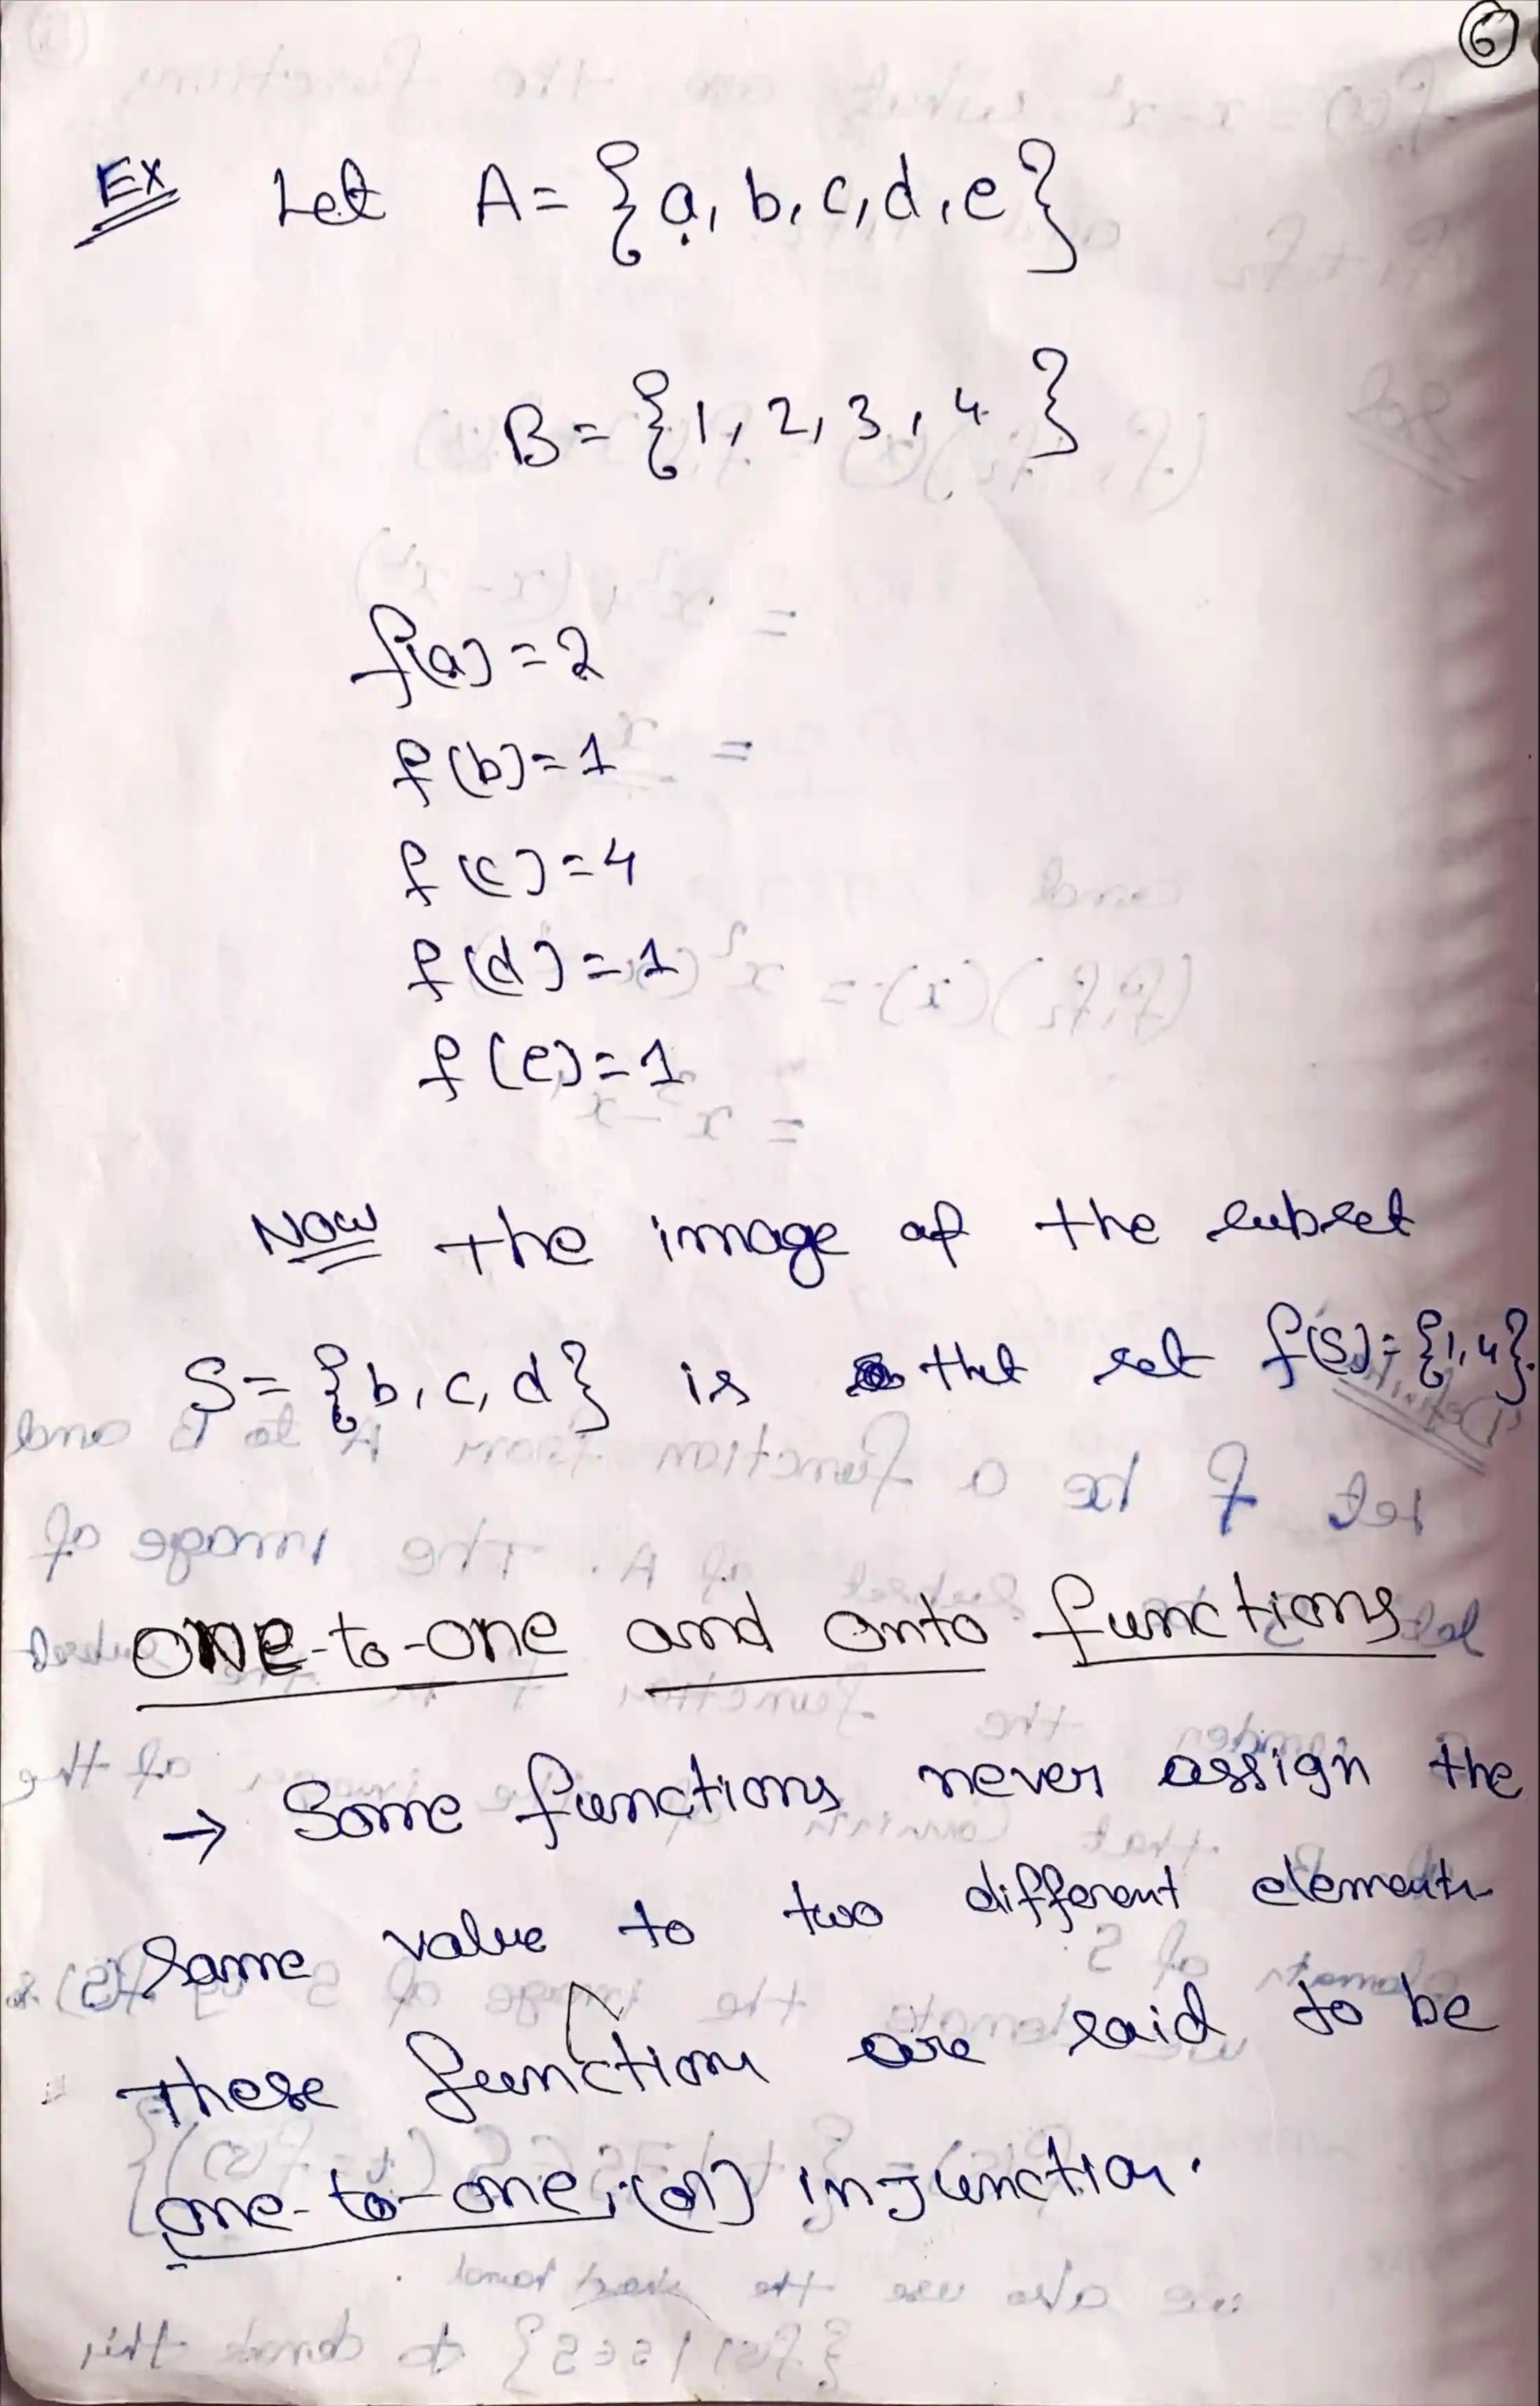 6
Ex Let A = {a, b, c, d, e}
B = {1, 2, 3, 4}
f(a) = 2
f(b) = 1
f(c) = 4
f(d) = 1
f(e) = 1
Now the image of the subset
S = {b, c, d} is the set f(S) = {1, 4}.
one-to-one and onto functions
→ Some functions never assign the
same value to two different elements
These functions are said to be
one-to-one, (or) injunction.